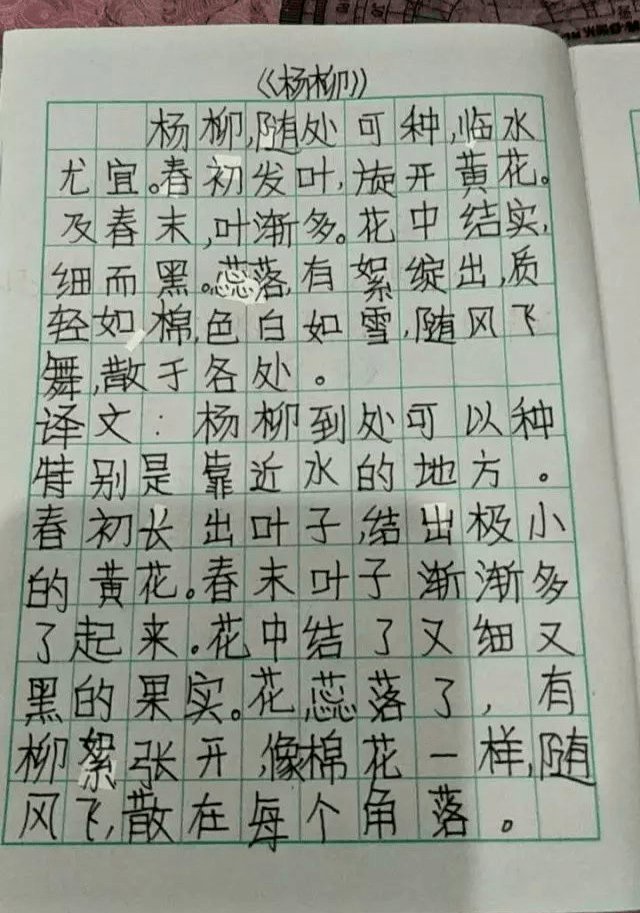 《杨柳》
杨柳,随处可种,临水
尤宜。春初发叶,旋开黄花。
及春末,叶渐多。花中结实,
细而黑。蕊落,有絮绽出,质
轻如棉,色白如雪,随风飞
舞,散于各处。
译文:杨柳到处可以种
特别是靠近水的地方。
春初长出叶子,结出极小
的黄花。春末叶子渐渐多
了起来。花中结了又细又
黑的果实。花蕊落了,有
柳絮张开,像棉花一样,随
风飞,散在每个角落。